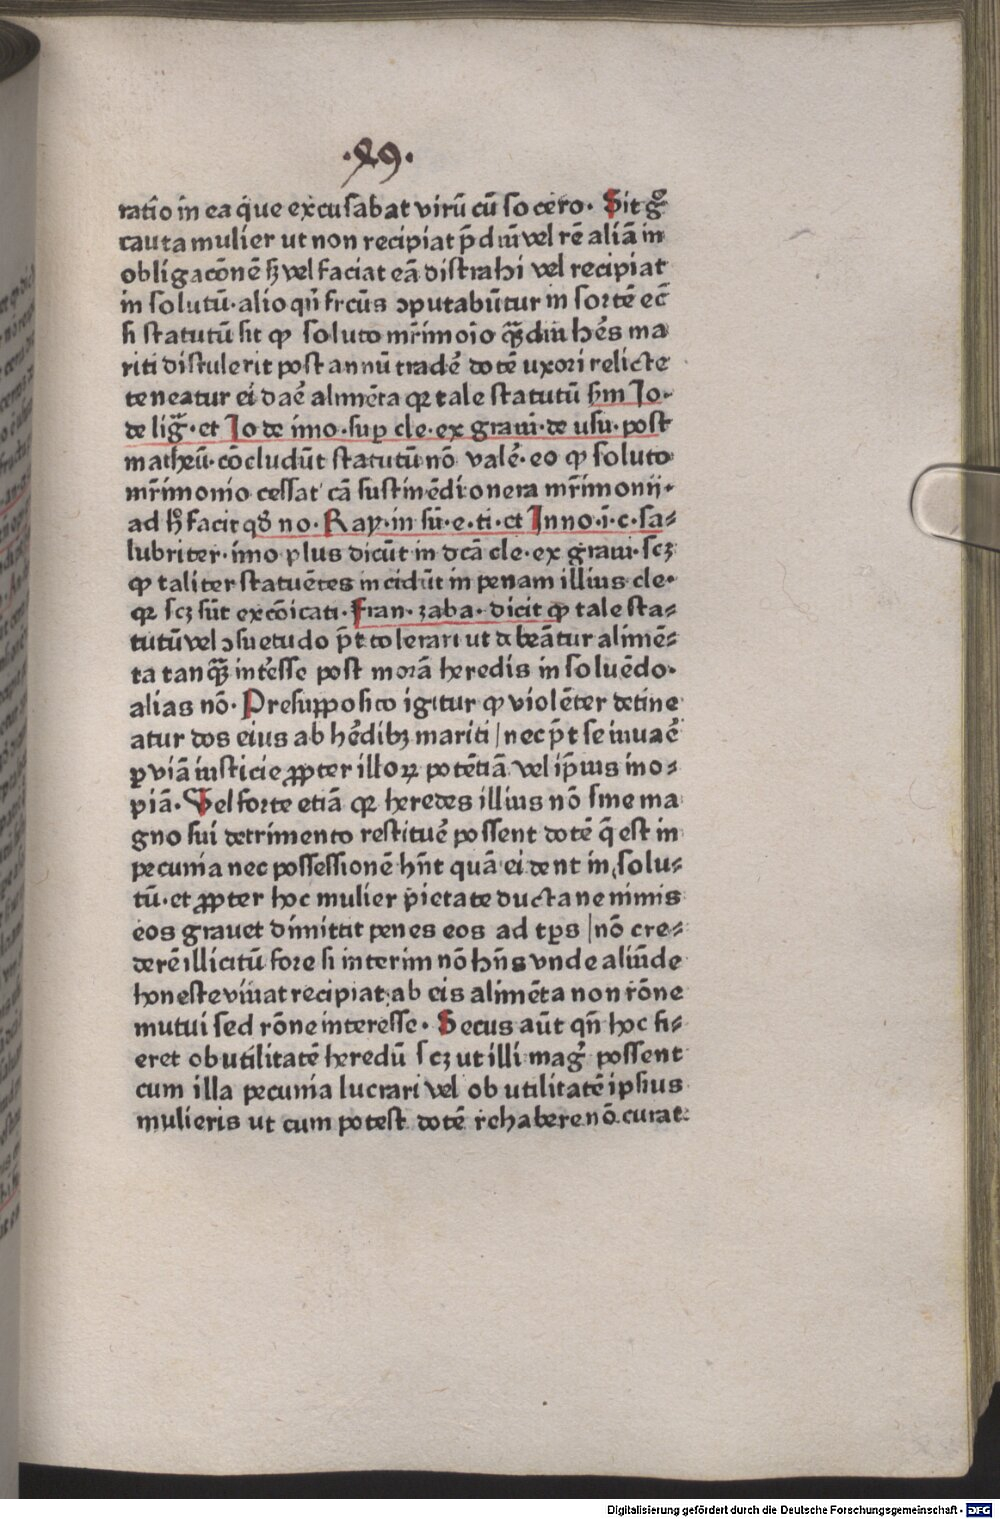 ·89·
ratiō in ea que excusabat virū cū socero· Sit gͦ
cauta mulier ut non recipiat p̄dium vel rē aliā in
obligacōnē ꝫ vel faciat eā distrahi vel recipiat
in solutū· alioqn̄ frc̄us ɔputabūtur in sortē ec̄
si statutū sit ꝙ soluto mr̄imoīo qͣꝫdiu hēs ma
riti distulerit post annū tradē dotē uxori relicte
teneatur ei daē alimēta qꝛ tale statutū ẜm Jo·
de ligͣ· et Jo de imo· suꝑ cle· ex graui· de usu· post
matheū· cōcludūt statutū nō valē· eo ꝙ soluto
mr̄imonio cessat cā sustinēdi onera mr̄imonij·
ad hͦ facit qð no· Ray· in sū· e· ti· et Inno· i· c· sa⸗
lubriter· imo plus dicūt in dcā cle· ex graui· scꝫ
ꝙ taliter statuētes incidūt in penam illius cle·
qꝛ scꝫ sūt excōicati· Fran· zaba· dicit ꝙ tale sta⸗
tutū vel ɔsuetudo p̄t tolerari ut debeātur alimē⸗
ta tanqͣꝫ intēsse post morā heredis in soluēdo·
alias nō· Presupposito igitur ꝙ violēter detine
atur dos eius ab hēdibꝫ mariti | nec p̄t se iuuaē
ꝑ viā iusticie ꝓpter illoꝝ potētiā vel ip̄ius ino⸗
piā· Vel forte etiā qꝛ heredes illius nō sine ma
gno sui detrimento restituē possent dotē q̄ est in
pecunia nec possessionē hn̄t quā ei dent in solu⸗
tū· et ꝓpter hoc mulier pietate ducta ne nimis
eos grauet dimittit penes eos ad tp̄s | nō cre⸗
derē illicitū fore si interim nō hn̄s vnde aliūde
honeste viuat recipiat ab eis alimēta non rōne
mutui sed rōne interesse· Secus aūt qn̄ hoc fi⸗
eret ob utilitatē heredū scꝫ ut illi magꝭ possent
cum illa pecunia lucrari vel ob utilitatē ipsius
mulieris ut cum potest dotē rehabere nō curat
Digitalisierung gefördert durch die Deutsche Forschungsgemeinschaft - DFG